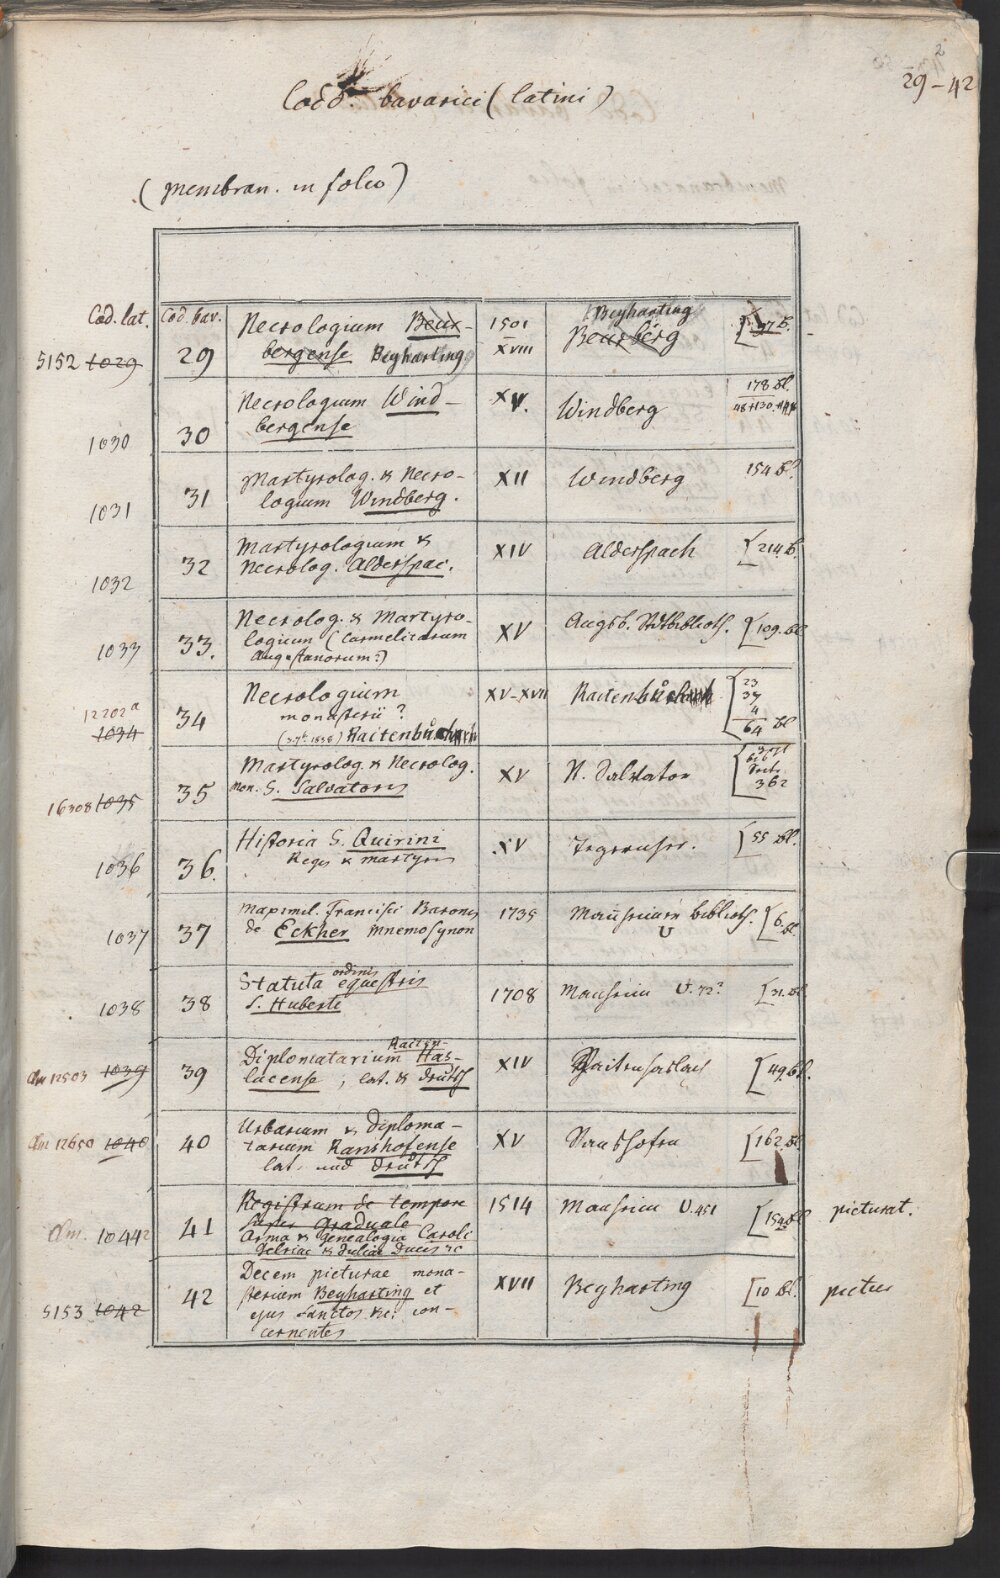 2
29-42
Codd. bavarici (latini)
(membran. in folio)
Cod. lat.
Cod. bav.
5152 1029
29
Necrologium Beur-
bergense Beyharting
1501
XVIII
Beyharting
Beurberg
97 B.
1030
30
Necrologium Wind-
bergense
XV.
Windberg
178 Bl.
48+130
1031
31
Martyrolog. & Necro-
logium Windberg.
XII
Windberg
154 B.
1032
32
Martyrologium &
Necrolog. Alderspac.
XIV
Alderspach
214 B.
1033
33.
Necrolog. & Martyro-
logium (Carmelitarum
Augustanorum?)
XV
Augsb. Stdtbiblioth.
109. Bl
12202a
1034
34
Necrologium
monasterii?
Raitenbůch
XV-XVII
Raitenbůch
23
37
4
64 Bl
16308 1035
35
Martyrolog. & Necrolog.
mon. S. Salvatoris
XV
St. Salvator
362
1036
36.
Historia S. Quirini
Regis & martyris
XV
Tegernsee.
55 Bl.
1037
37
Maximil. Francisci Baronis
de Eckher Mnemosynon
1735
Mannheimer biblioth.
U
6. Bl.
1038
38
Statuta ordinis equestris
S. Huberti
1708
Mannheim U. 72?
31. Bl
Clm 12503 1039
39
Diplomatarium Raiten-
Has-
lacense, lat. & deutsch
XIV
Raitenhaslach
49. Bl.
Clm 12650 1040
40
Urbarium & Diploma-
tarium Ranshofense
lat. und deutsch
XV
Ranshofen
162. Bl
Clm. 10442
41
Registrum de tempore
super Graduale
Arma & genealogia Caroli
Gelriae & Juliae Ducis &c
1514
Mannheim U. 451
154 Bl
picturat.
5153 1042
42
Decem picturae mona-
sterium Beyharting et
ejus Sanctos &c. con-
cernentes
XVII
Beyharting
10 Bl.
pictur